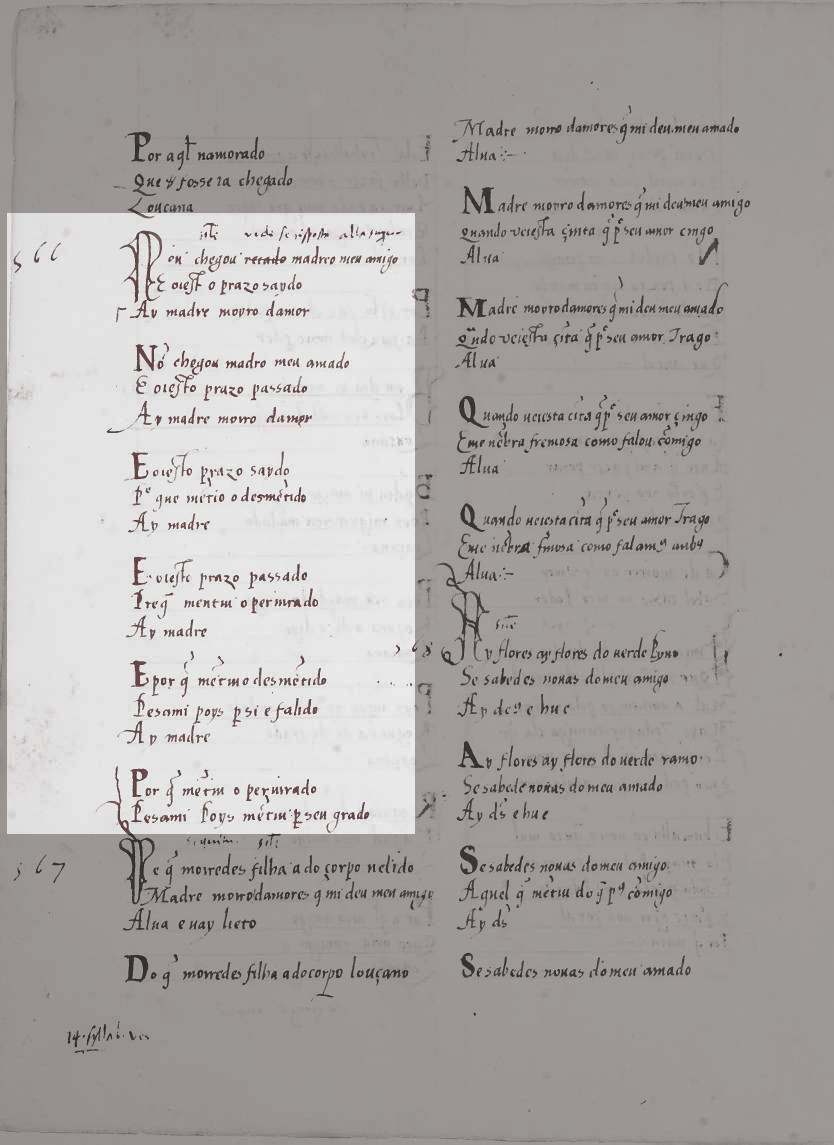 Por a q̄l namorado
Que y̆ fosse ia chegado
Loucana
566
Nōn chegou recado madre o meu amigo
E oiest̃ o prazo saydo
Ay madre moyro damor
Nō chegou madro meu amado
E oiest̃o prazo passado
Ay madre moiro damor
E oiest̃o prazo saydo
Pᵉ que mẽtio o desmẽtido
Ay madre
E oiest̃e prazo passado
Preq̄ mentiu o periurado
Ay madre
E por q̄ mẽtiuo desmẽtido
Pesami poys p̱ si e falido
Ay madre
Por q̄ mẽtiu o periurado
Pesami Poys mẽtiu p̱ seu grado
567
De q̄ moiredes filha a do corpo nelido
Madre moiro damores q̄ mi deu meu amigo
Alua e uay lieto
Do q̄ morredes filha a do corpo louçano
14 syllab.
Madre moiro damores q̄ mi deu meu amado
Alua
Madre moyro damores q̄ mi deu meu amigo
quando ueiest̃a çinta q̄ pᵉ seu amor cingo
Alua
Madre moyro damores q̄ mi deu meu amado
qñdo ueiest̃a çĩta q̄ pᵉ seu amor Trago
Alua
Quando ueiesta cĩta q̄ pᵉ seu amor çingo
Eme nẽbra fremosa como falou cõmigo
Alua
Quando ueiesta cĩta q̄ pᵉ seu amor Trago
Eme nẽbra fm̃osa como falamꝯ anbꝯ
Alua
568
Ay flores ay flores do uerde Pyno
Se sabedes nouas do meu amigo
Ay deꝯ e hu e
Ay flores ay flores do uerde ramo
Se sabede nouas do meu amado
Ay ds̃ e hu e
Se sabedes nouas do meu amigo
Aquel q̄ mẽtiu do q̄ pꝯ cõmigo
Ay ds̃
Se sabedes nouas do meu amado